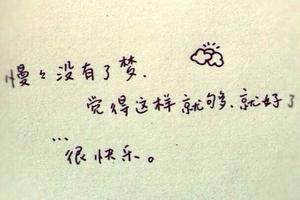 慢々没有了梦、
觉得这样就够、就好了
...
很快乐。